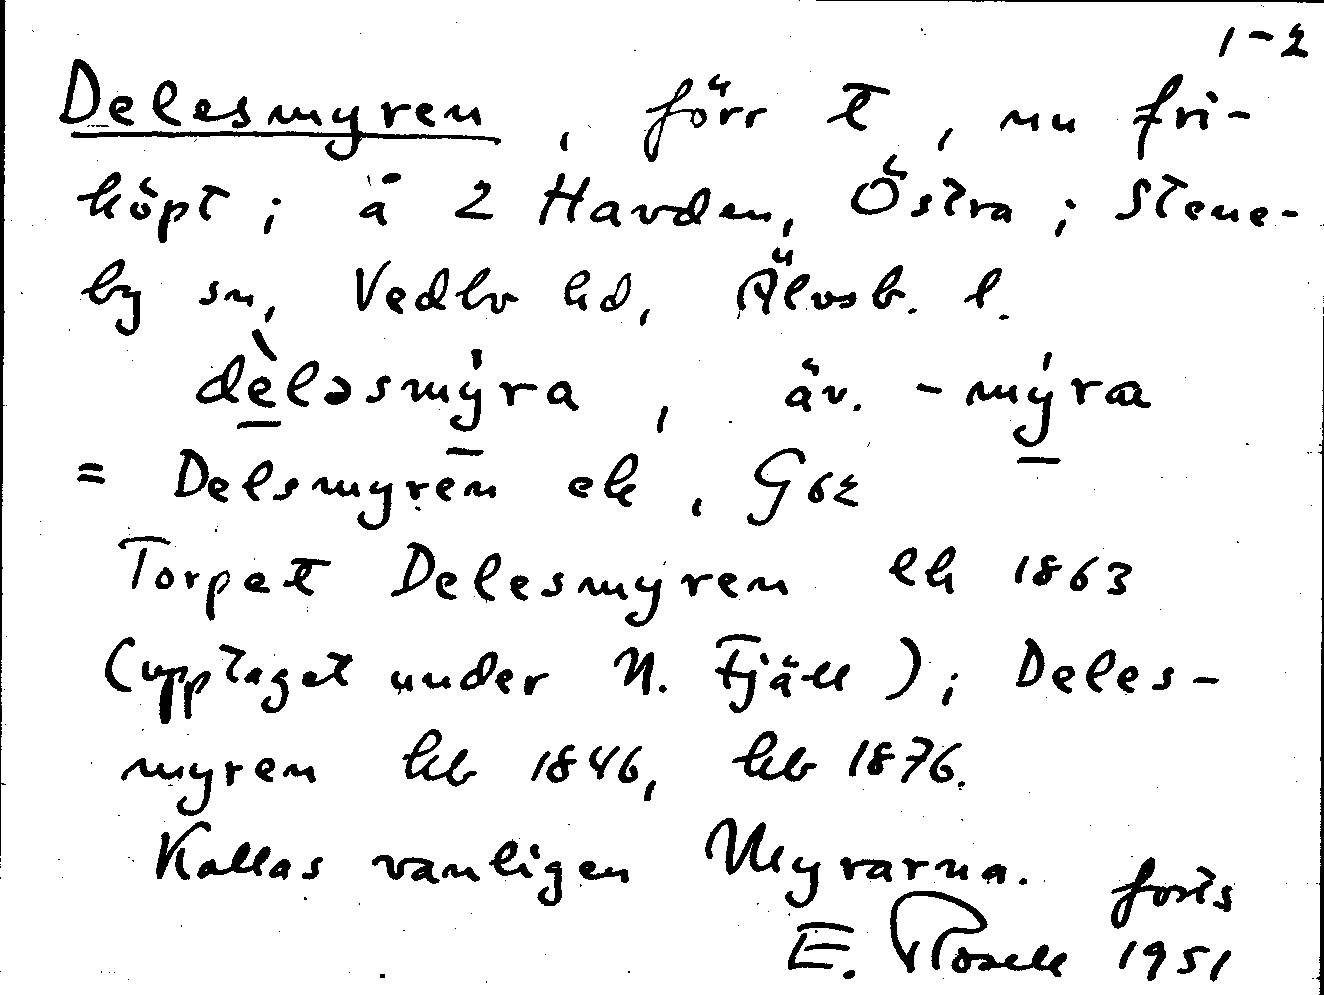 1-2
Delesmyren, förr t, nu fri-
köpt; å 2 Havden, Östra; Stene-
by sn, Vedbo hd, Älvsb. l.
dèləsmýra, äv. -mýra
= Delsmyren ek, Gsε
Torpet Delesmyren lh 1863
(upptaget under N. Fjäll); Deles-
myren hb 1846, hb 1876.
Kallas vanligen Myrarna. forts
E. Rosell 1951